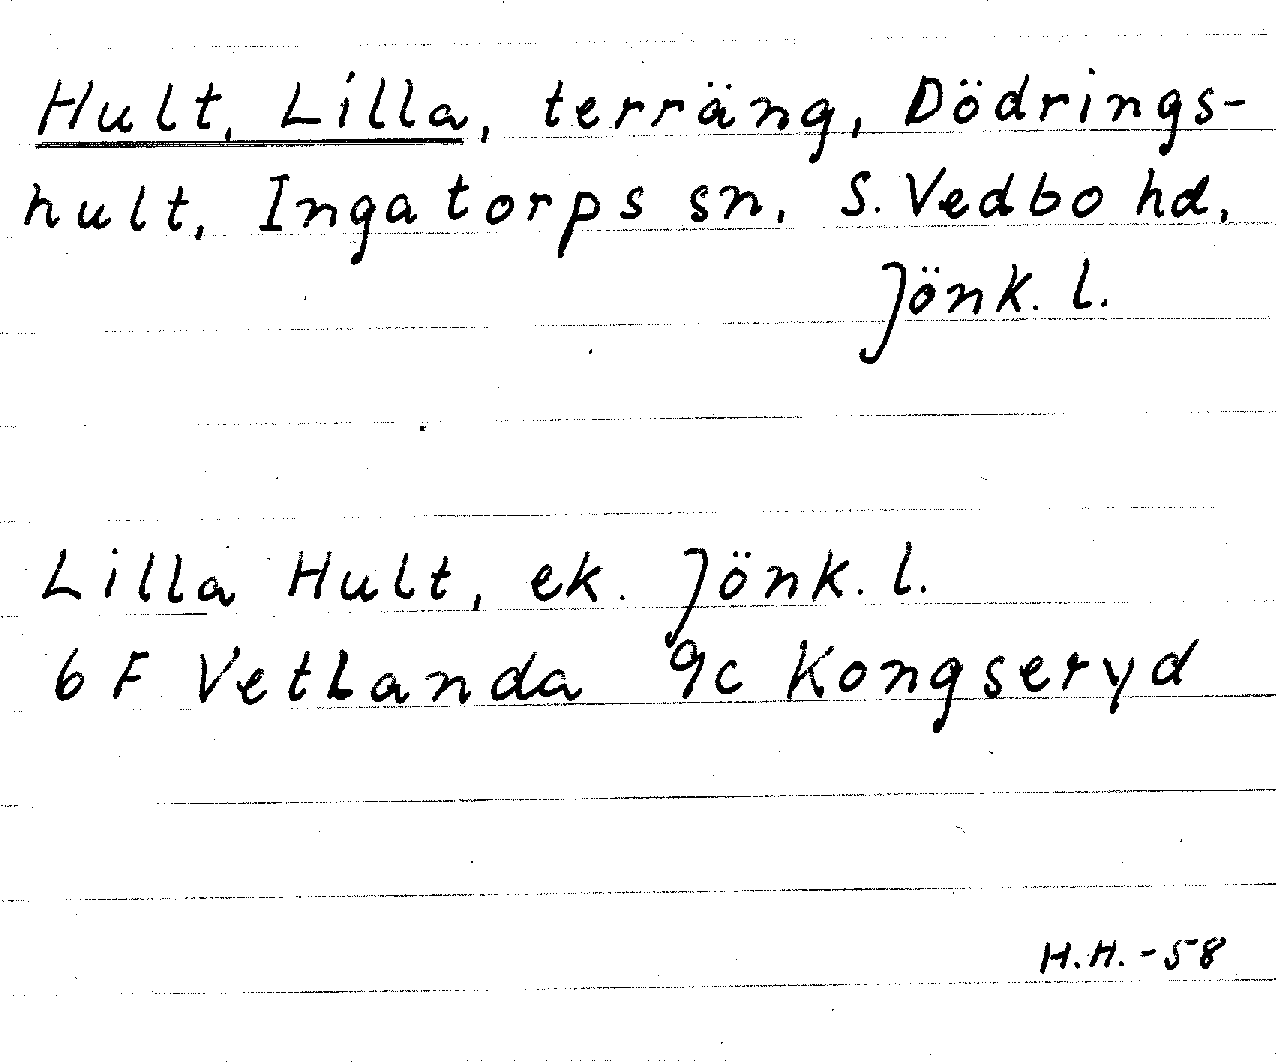 Hult, Lilla, terräng, Dödrings-
hult, Ingatorps sn, S. Vedbo hd,
Jönk. l.
Lilla Hult, ek. Jönk. l.
6 F Vetlanda 9c Kongseryd
H.H. -58